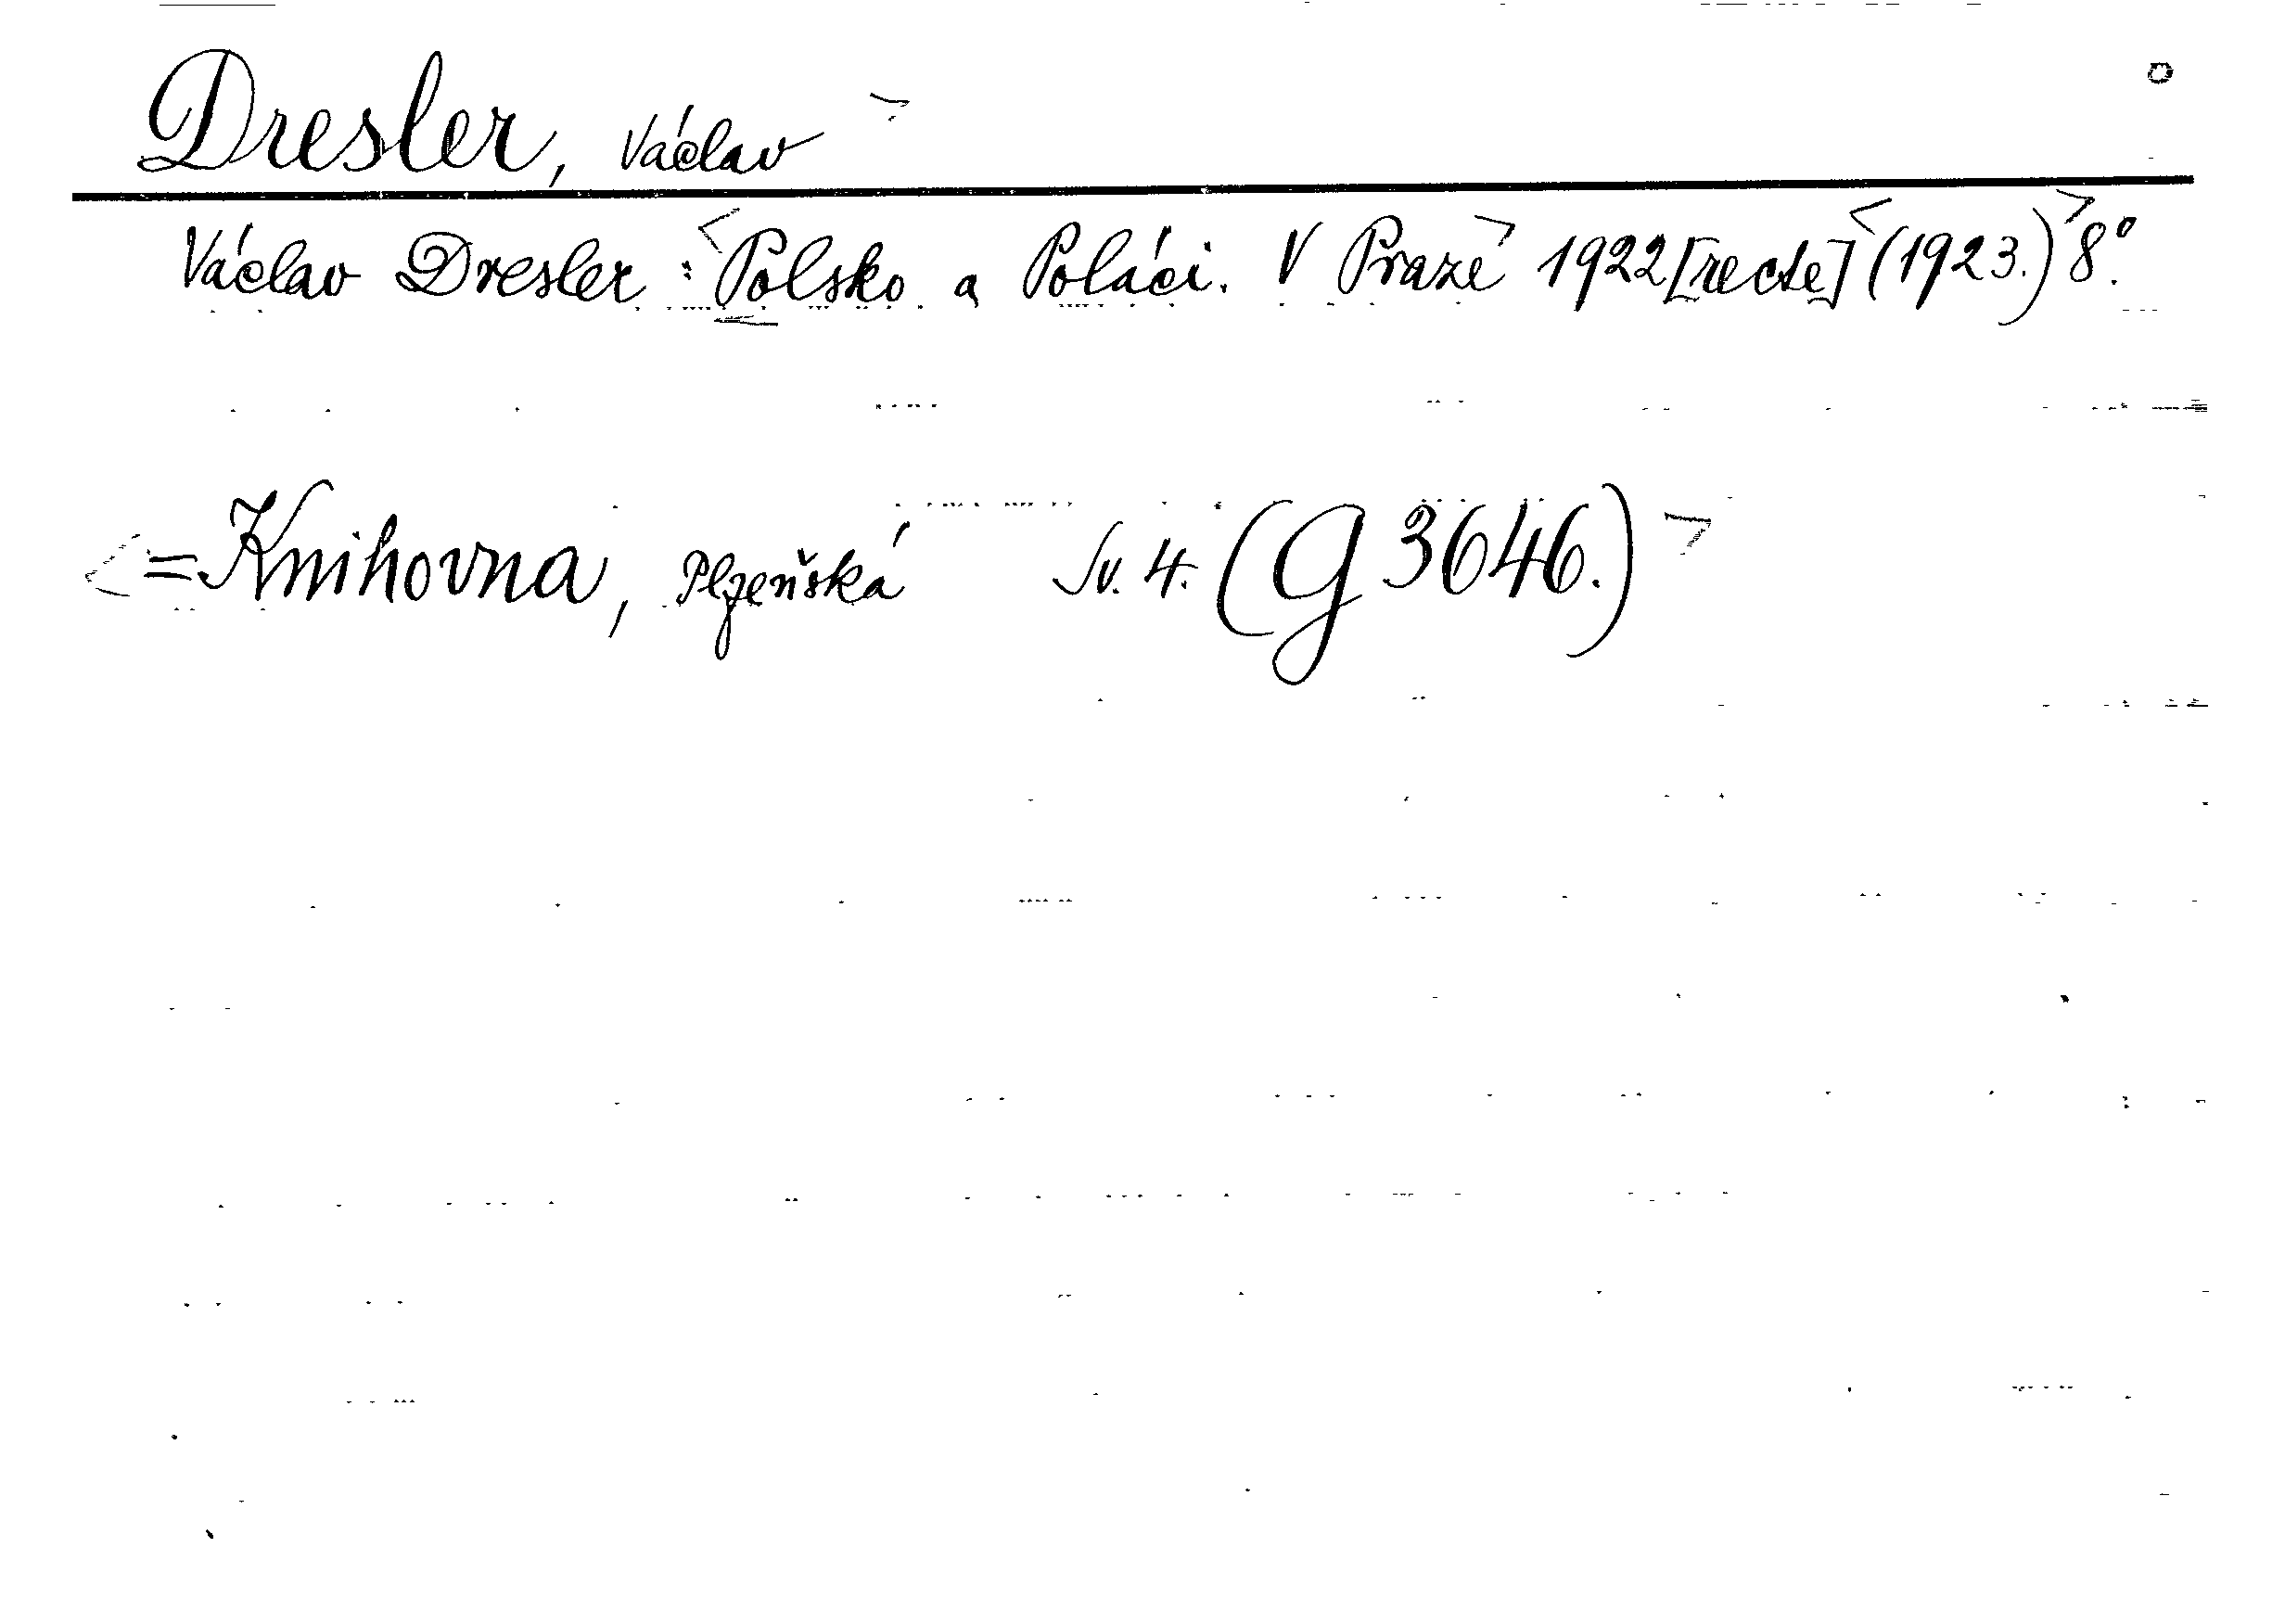 Dresler, Václav
Václav Dresler: Polsko a Poláci. V Praze 1922 [recte] (1923.) 8°.
= Knihovna, Plzeňská Sv. 4. (G 3646.)